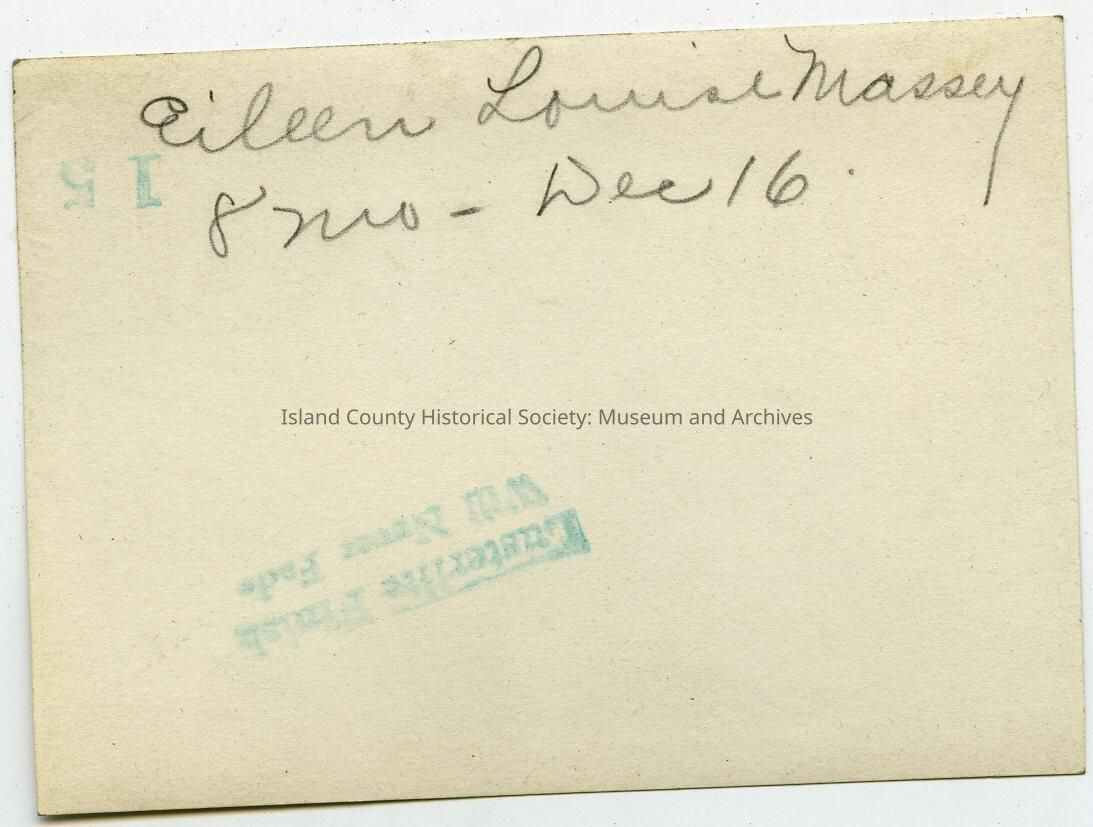 Eileen Louise Massey
8 mo - Dec 16.
15
Island County Historical Society: Museum and Archives
Will Never Fade
Crusterlite Finish